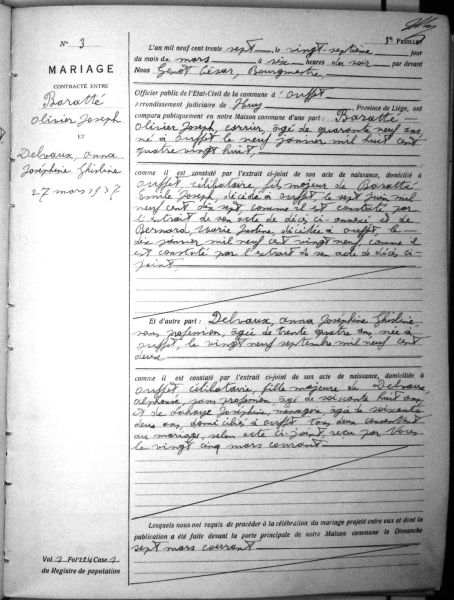 1e FEUILLET
N° 3
MARIAGE
CONTRACTÉ ENTRE
Baratté
Olivier Joseph
ET
Delvaux, Anna
Joséphine Ghisline
27 mars 1937
L'an mil neuf cent trente sept, le vingt-septième jour
du mois de mars à six heures du soir par devant
Nous Genot César, Bourgmestre,
Officier public de l'Etat-Civil de la commune d'Ouffet
Arrondissement judiciaire de Huy, Province de Liége, ont
comparu publiquement en notre Maison commune d'une part : Baratté
Olivier Joseph, âgé de quarante neuf ans
né à Ouffet le neuf janvier mil huit cent
quatre vingt huit
comme il est constaté par l'extrait ci-joint de son acte de naissance, domicilié à
Ouffet célibataire, fils majeur de Baratté
Emile Joseph, décédé à Ouffet le sept juin mil
neuf cent dix sept comme il est constaté par
l'extrait de son acte de décès ci-annexé et de
Bernard, Marie Justine, décédée à Ouffet le
dix janvier mil neuf cent vingt neuf comme il
est constaté par l'extrait de son acte de décès ci-
joint
Et d'autre part : Delvaux, Anna Joséphine Ghisline
sans profession, âgée de trente quatre ans née à
Ouffet, le vingt neuf septembre mil neuf cent
deux
comme il est constaté par l'extrait ci-joint de son acte de naissance, domiciliée à
Ouffet célibataire, fille majeure de Delvaux
Alphonse, sans profession, âgé de soixante huit ans
et de Lahaye Joséphine ménagère, âgée de soixante
deux ans, domiciliés à Ouffet tous deux consentant
au mariage, selon acte ci-joint, reçu par Nous
le vingt cinq mars courant
Lesquels nous ont requis de procéder à la célébration du mariage projeté entre eux et dont la
publication a été faite devant la porte principale de notre Maison commune le Dimanche
sept mars courant
Vol. 7 Fol. 124 Case 1
du Registre de population